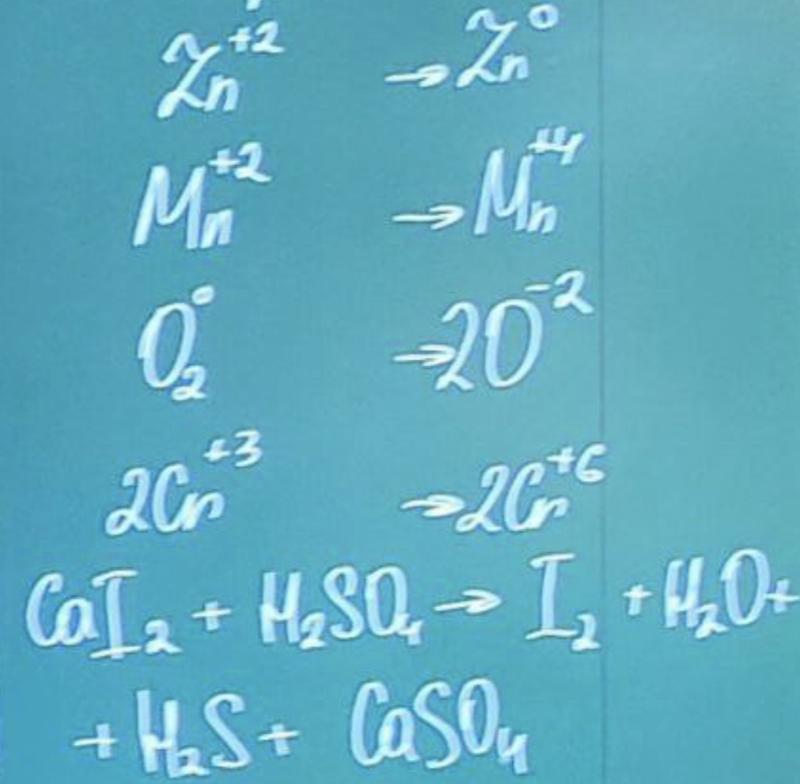 Zn⁺² → Zn⁰
Mn⁺² → Mn⁺⁴
O₂⁰ → 2O⁻²
2Cr⁺³ → 2Cr⁺⁶
CaI₂ + H₂SO₄ → I₂ + H₂O +
+ H₂S + CaSO₄